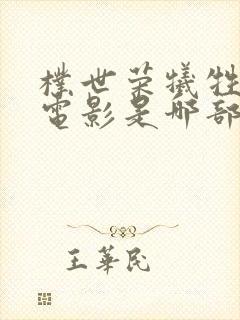 樸世荣犧牲
電影是那部
王華民